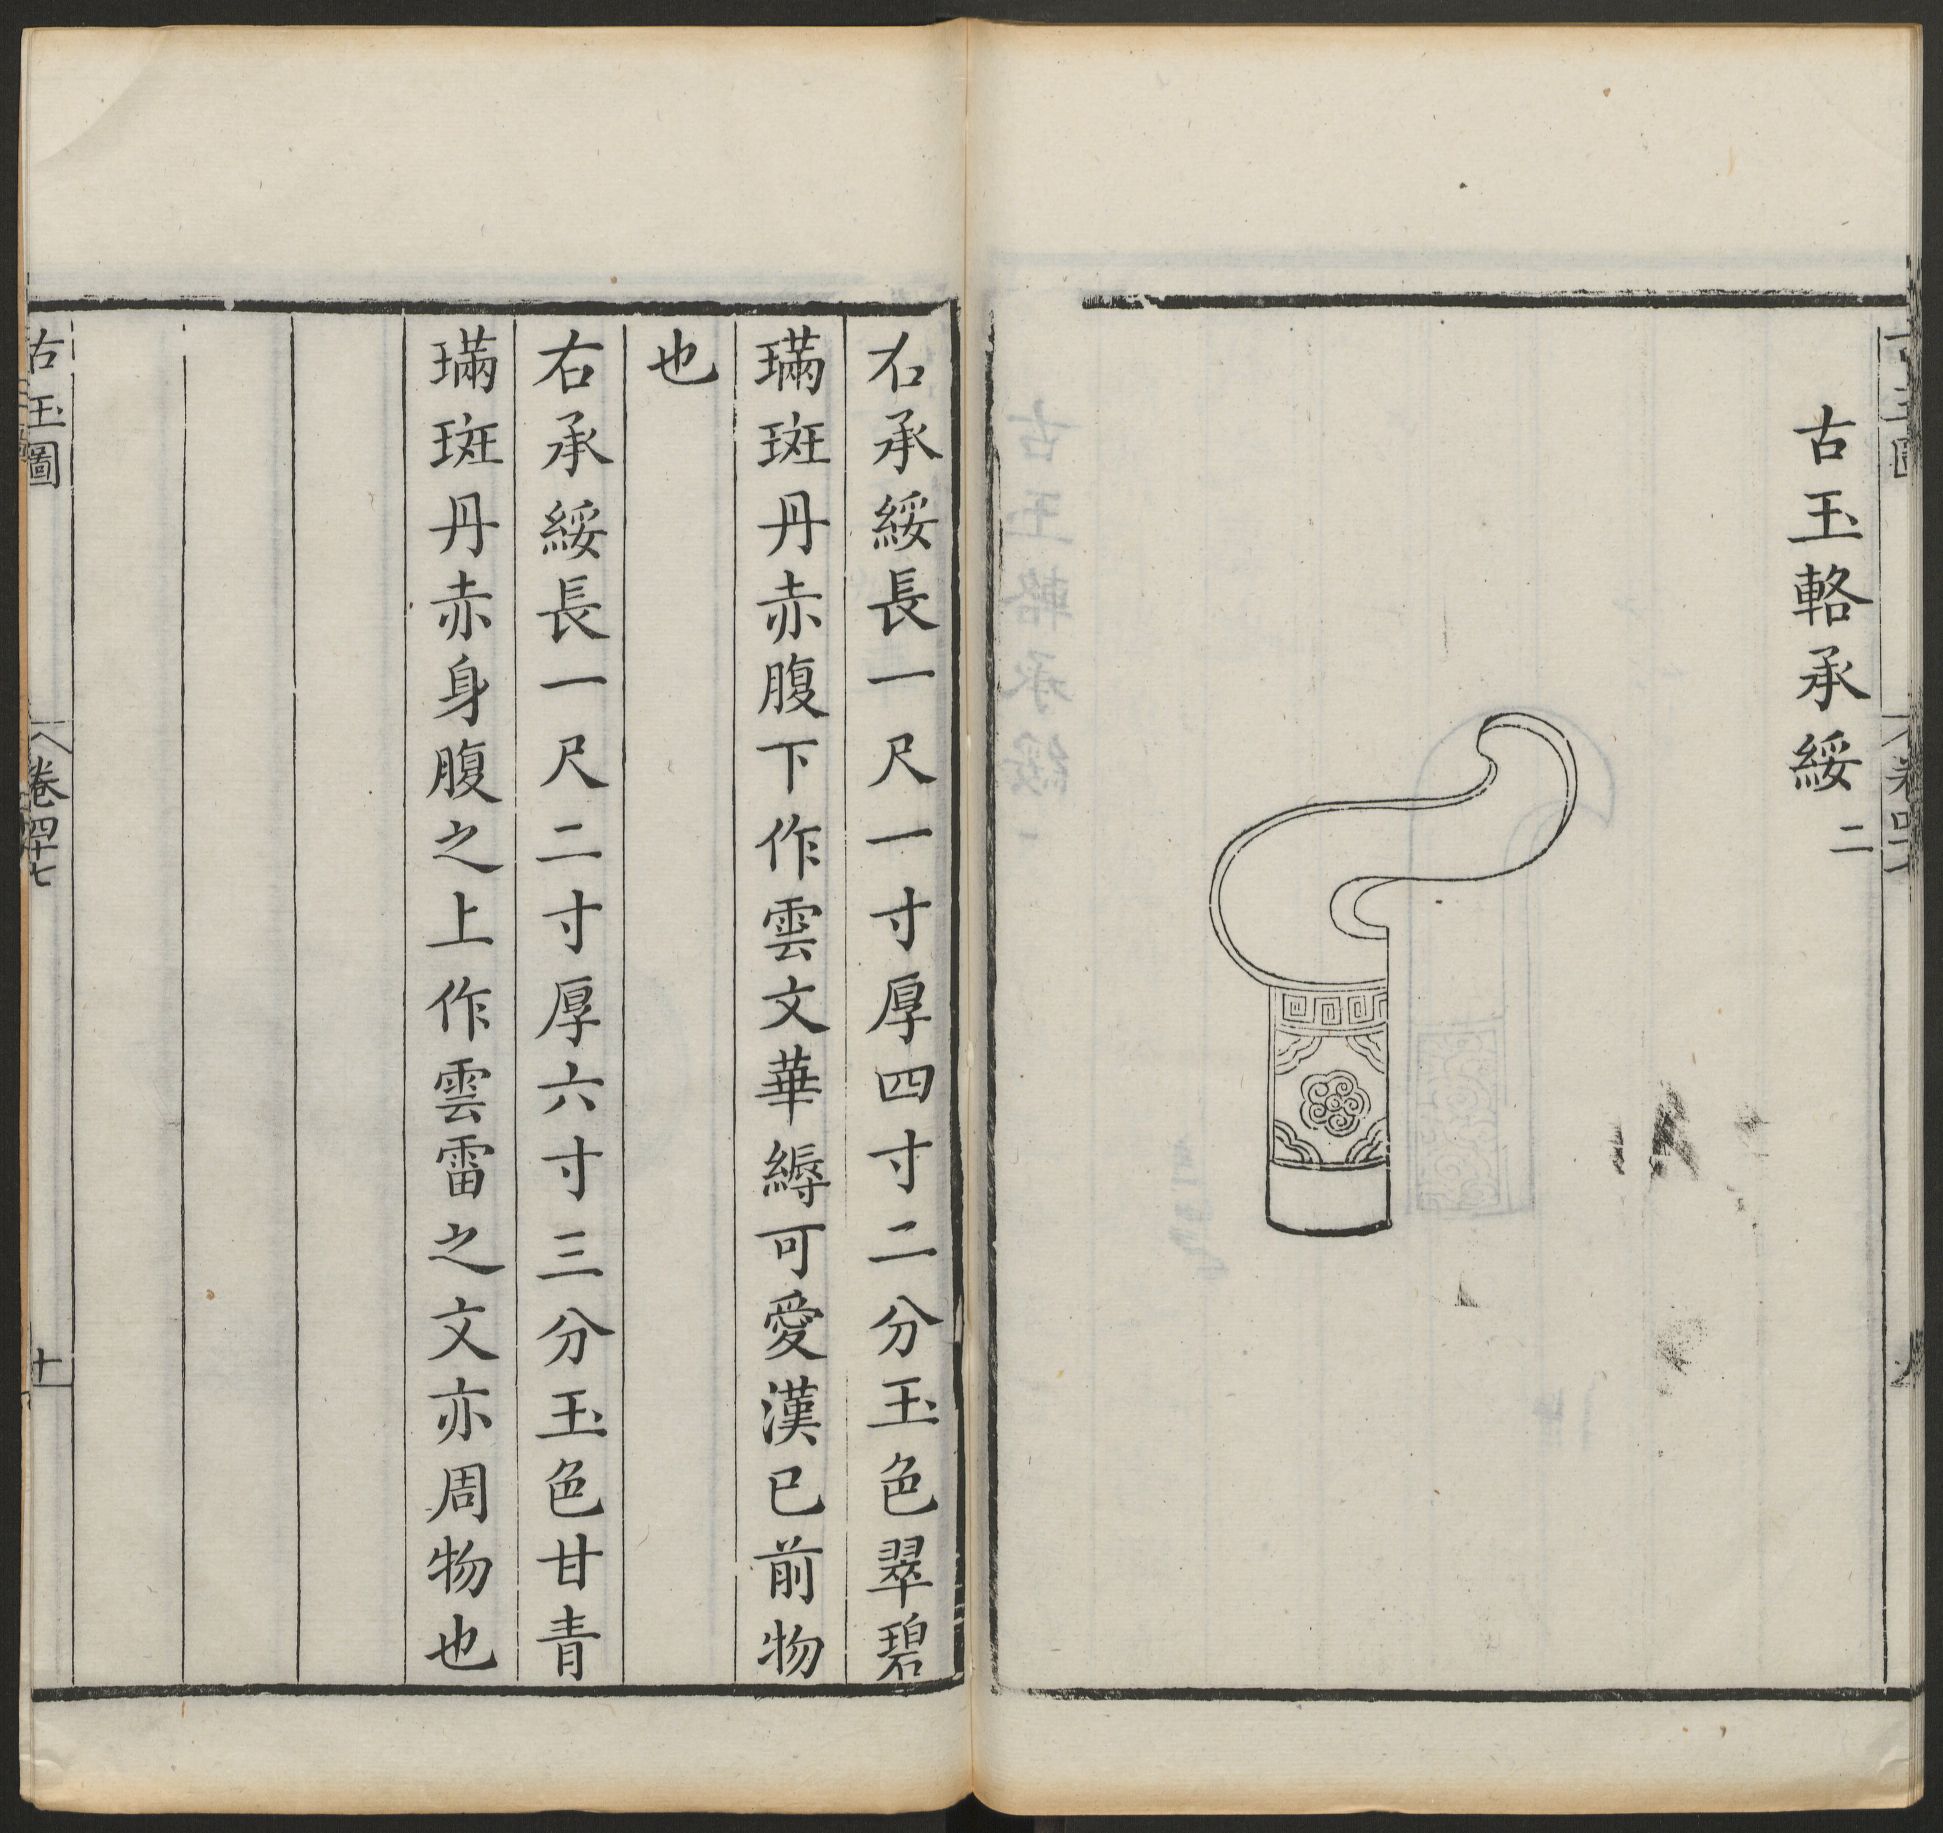 古玉輅承綏二
右承綏長一尺一寸厚四寸二分玉色翠碧
璊斑丹赤腹下作雲文華縟可愛漢已前物
也
右承綏長一尺二寸厚六寸三分玉色甘青
璊斑丹赤身腹之上作雲雷之文亦周物也
古玉圖
卷四十七
十